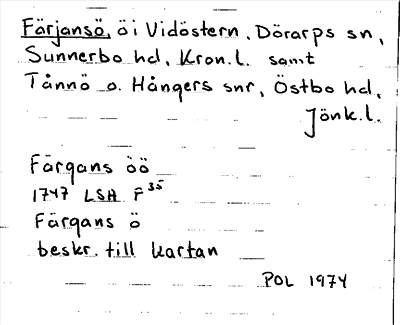 Färjansö, ö i Vidöstern, Dörarps sn,
Sunnerbo hd, Kron.l. samt
Tånnö o. Hångers snr, Östbo hd,
Jönk.l.
Färgans öö
1747 LSA F 35
Färgans ö
beskr. till kartan
POL 1974